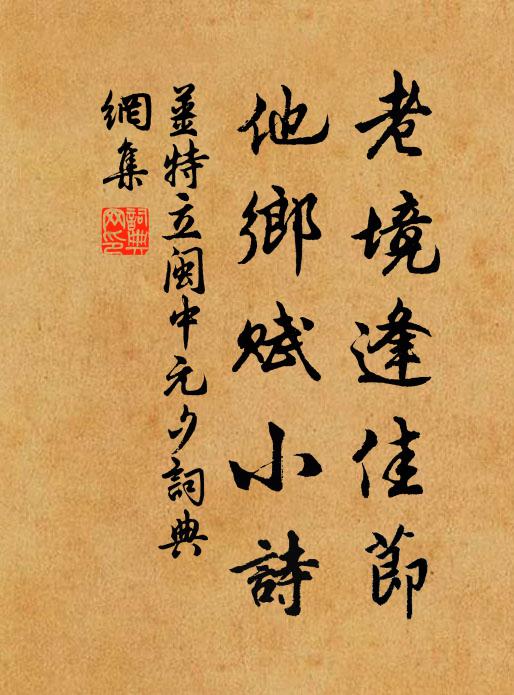 老境逢佳節
他鄉賦小詩
姜特立閩中元夕詞典
網集
詞典網印